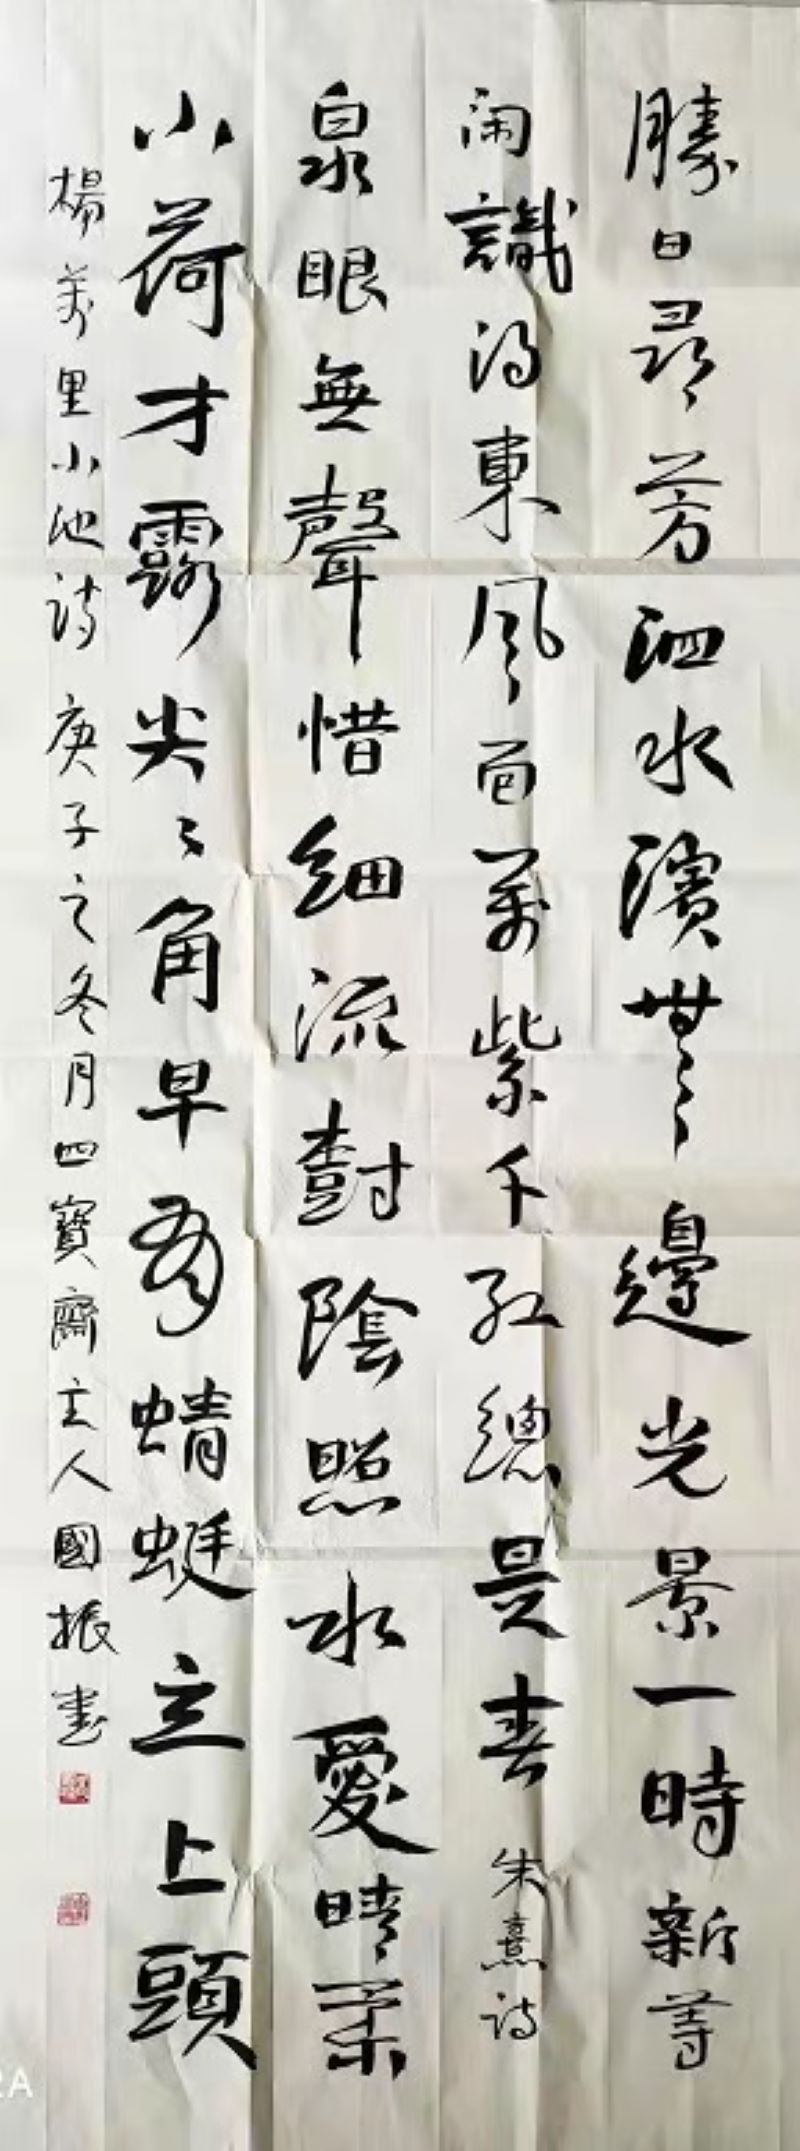 勝日尋芳泗水濱無〻邊光景一時新等
闲識得東風面萬紫千红總是春 朱熹詩
泉眼無聲惜細流樹陰照水愛晴柔
小荷才露尖〻角早有蜻蜓立上頭
楊萬里小池詩 庚子之冬月四寶齋主人國振书
2A